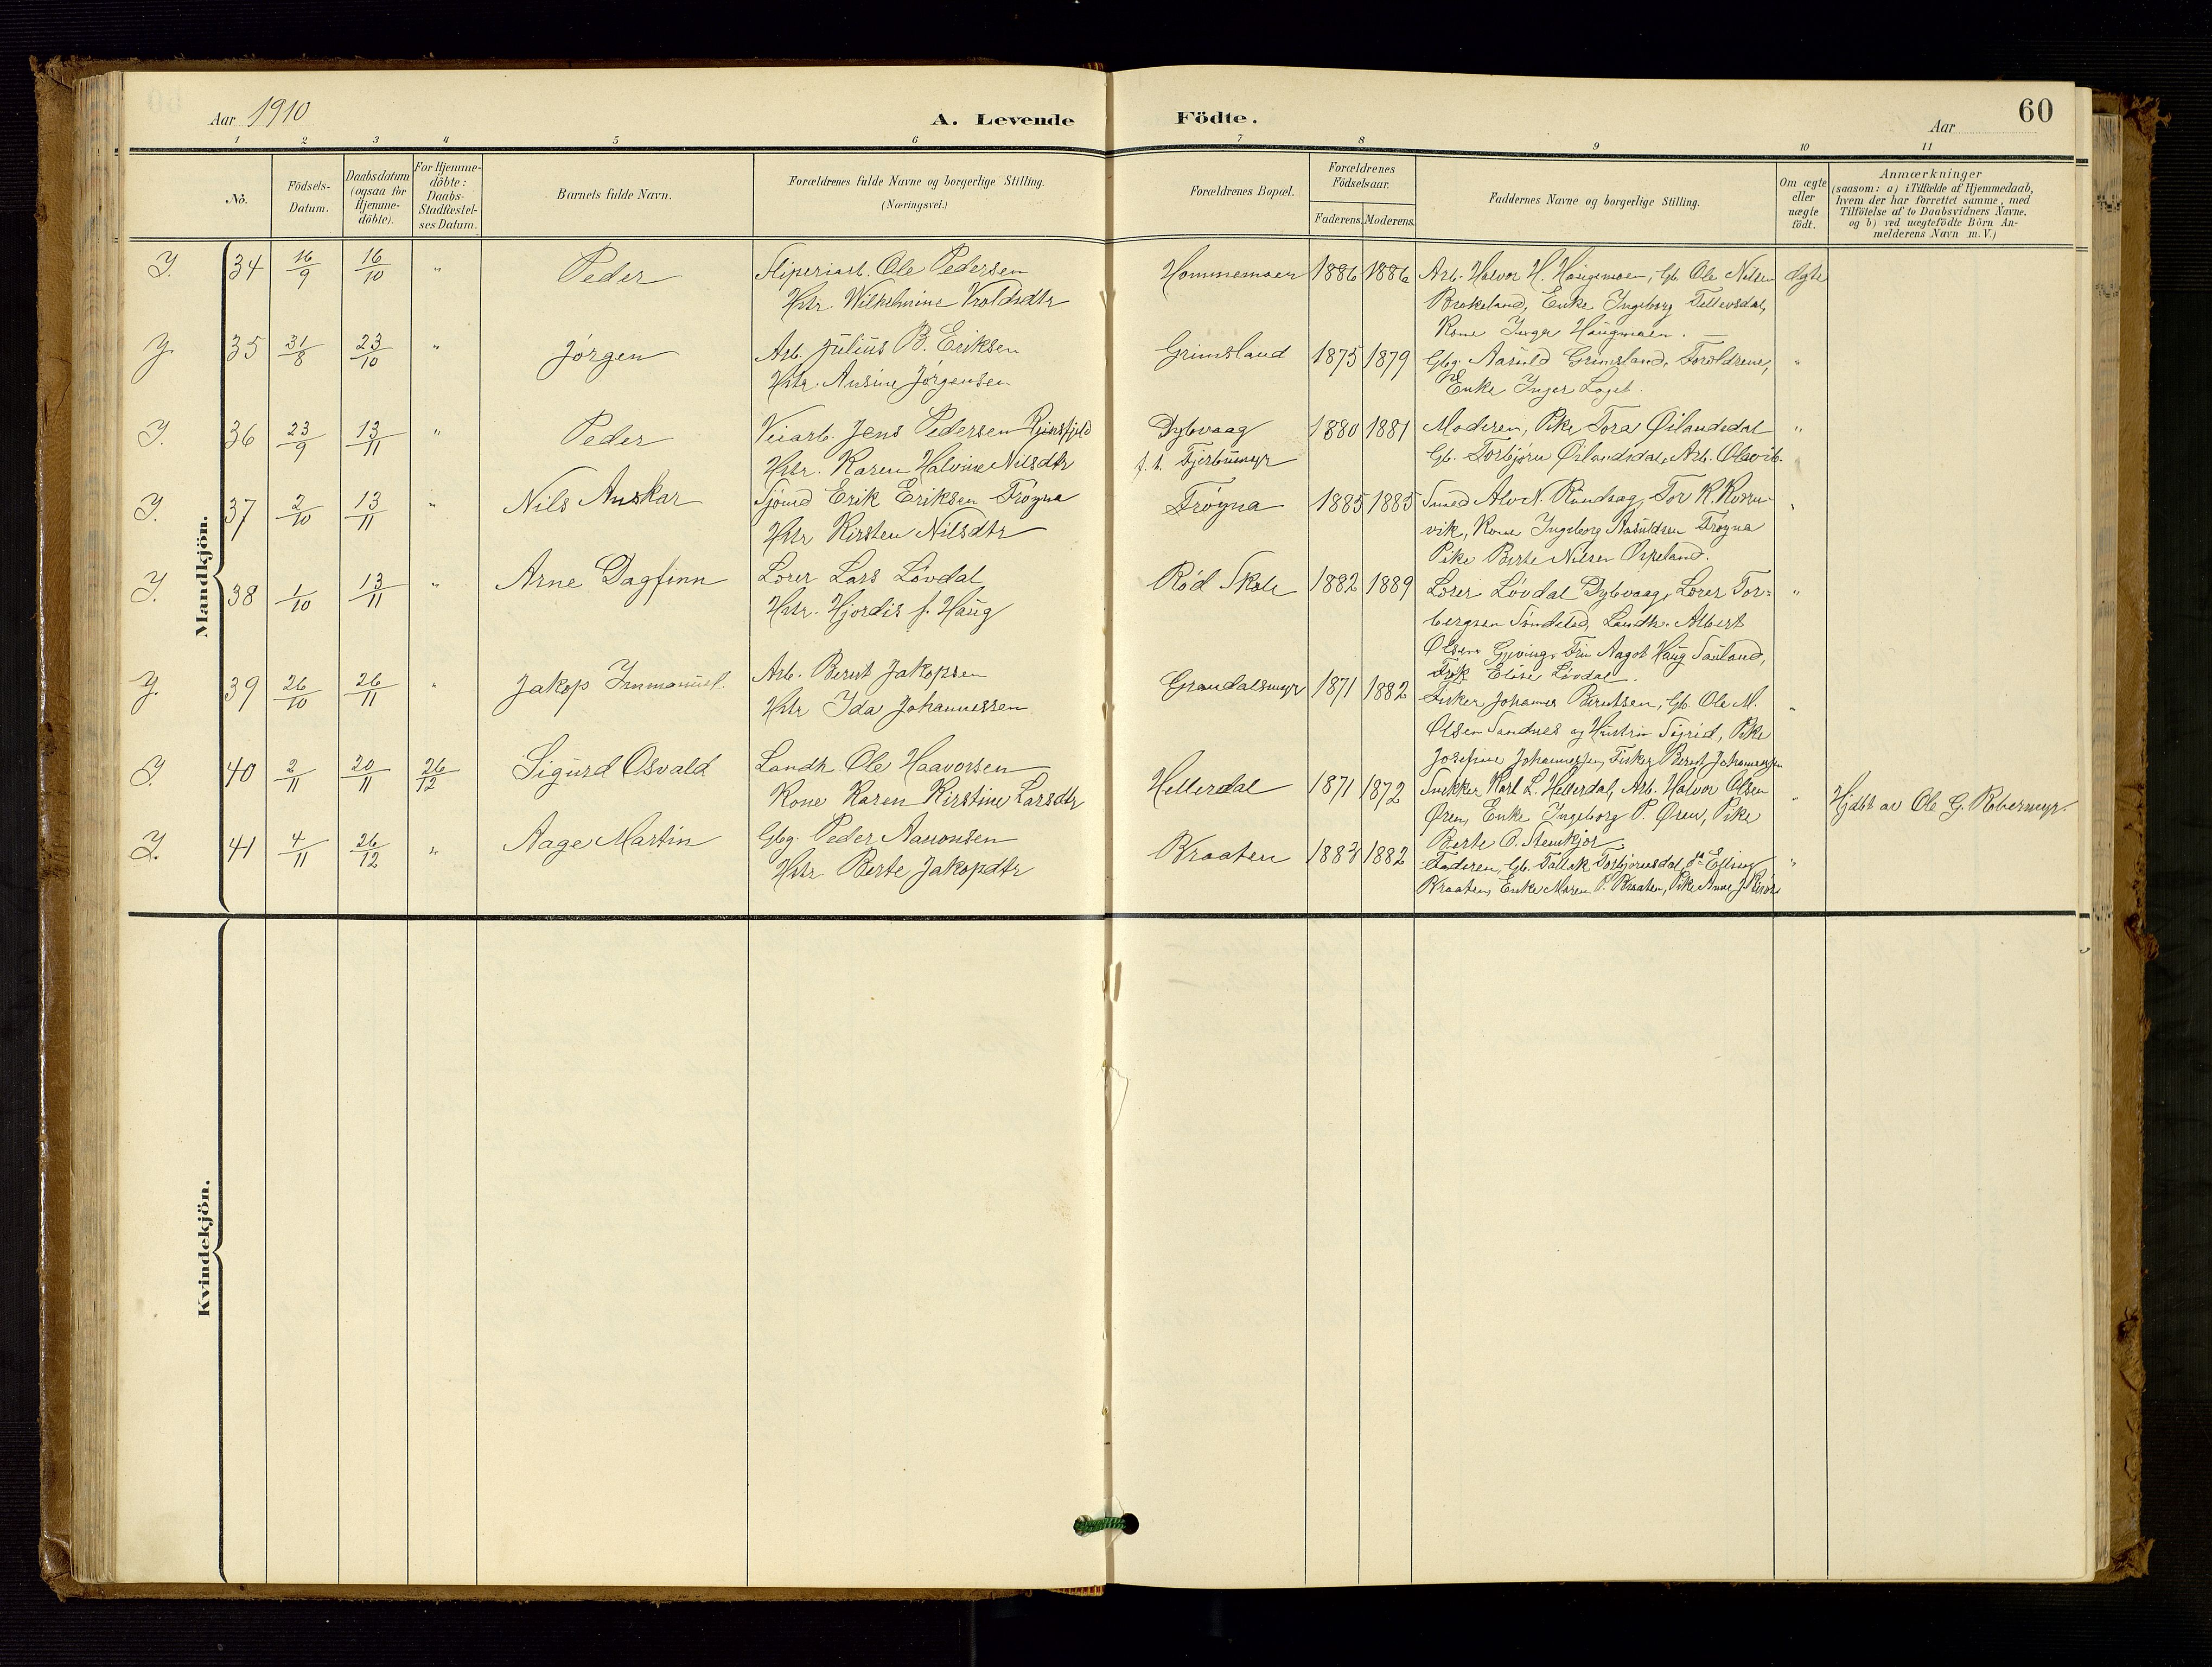 60
Aar 1910
A. Levende Födte.
Aar
1 2 3 4 5 6 7 8 9 10 11
Nò.
Födsels-
Datum.
Daabsdatum
(ogsaa for
Hjemme-
döbte).
For Hjemme-
döbte:
Daabs-
Stadfæstel-
ses Datum.
Barnets fulde Navn.
Forældrenes fulde Navne og borgerlige Stilling.
(Næringsvei.)
Forældrenes Bopæl.
Forældrenes
Födselsaar.
Faderens.
Moderens.
Faddernes Navne og borgerlige Stilling.
Om ægte
eller
uægte
födt.
Anmærkninger
(saasom: a) i Tilfælde af Hjemmedaab,
hvem der har forrettet samme, med
Tilföielse af to Daabsvidners Navne.
og b) ved uægtefödte Börn An-
melderens Navn m. V.)
Mandkjön.
J. 34 16/9 16/10 " Peder
Sliperiarb. Ole Pedersen
Hstr. Wilhelmine Voldsdtr
Hommemoen 1886 1886
Arb. Halvor H. Haugemoen, Gb. Ole Nilsen
Brokeland, Enke Ingeborg Tellevsdal,
Kone Inger Haugmoen. —
Ægte
J. 35 31/8 23/10 " Jørgen
Arb. Julius B. Eriksen
Hstr. Ansine Jørgensen
Grimsland 1875 1879
Gbg. Aasuld Grimsland, Forældrene,
Enke Inger Laget.
"
J. 36 23/9 13/11 " Peder
Veiarb. Jens Pedersen Reinsfjeld
Hstr. Karen Halvine Nilsdtr
Dybvaag
f. t. Fjerbumyr
1880 1881
Moderen, Pike Tora Øilandsdal
Gb. Torbjørn Øilandsdal, Arb.
"
J. 37 2/10 13/11 " Nils Anskar
Sjømd Erik Eriksen Trøgna
Hstr Kirsten Nilsdtr
Trøgna 1885 1885
Smed Alv N. Rundsag, Tor K.
vik, Kone Ingeborg Aasuldsen Trøgna
Pike Berte Nilsen Øspeland.
"
J. 38 1/10 13/11 " Arne Dagfinn
Lærer Lars Løvdal
Hstr. Hjørdis f. Haug
Rød Skole 1882 1889
Lærer Løvdal Dybvaag, Lærer Tor-
bergsen Søndeled, Landh. Albert
Olsen Gjeving, Fru Aagot Haug Sauland,
Frøk. Elise Løvdal.
"
J. 39 26/10 26/11 " Jakop Immanuel.
Arb. Berent Jakopsen
Hstr Ida Johannessen
Grandalsmyr 1871 1882
Fisker Johannes Berntsen, Gb. Ole M.
Olsen Sandnes og Hustru Sigrid, Pike
Josefine Johannessen, Fisker Berent Johannessen
"
J. 40 2/11 20/11 26/12 Sigurd Osvald
Landh. Ole Haavorsen
Kone Karen Kirstine Larsdtr
Hellersdal 1871 1872
Snekker Karl L. Hellerdal, Arb. Halvor Olsen
Øren, Enke Ingeborg P. Øren, Pike
Berte O. Stenkjør
"
Hjdbt av Ole G. Robersmyr.
J. 41 4/11 26/12 " Aage Martin
Gbg. Peder Aanonsen
Hstr Berte Jakopdtr
Kraaten 1883 1882
Faderen, Gb. Tallak Torbjørnsdal, Elling
Kraaten, Enke Maren P. Kraaten, Pike Anne J.
"
Kvindekjön.